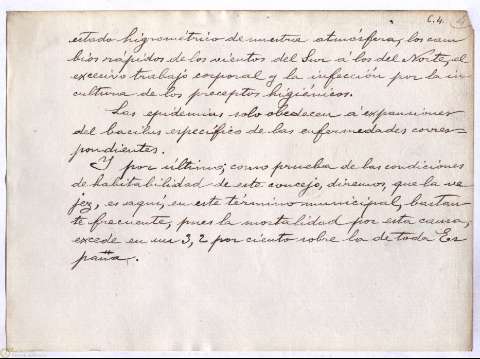 C.4.
estado higrométrico de nuestra atmósfera, los cam
bios rápidos de los vientos del Sur á los del Norte, el
excesivo trabajo corporal y la infección por la in
cultura de los preceptos higiénicos.
Las epidemias solo obedecen á expansiones
del bacilus específico de las enfermedades corres=
pondientes.
Y por último; como prueba de las condiciones
de habitabilidad de este concejo, diremos, que la ve
jez, es aquí, en este término municipal, bastan
te frecuente, pues la mortalidad por esta causa,
excede en un 3,2 por ciento sobre la de toda Es
paña.